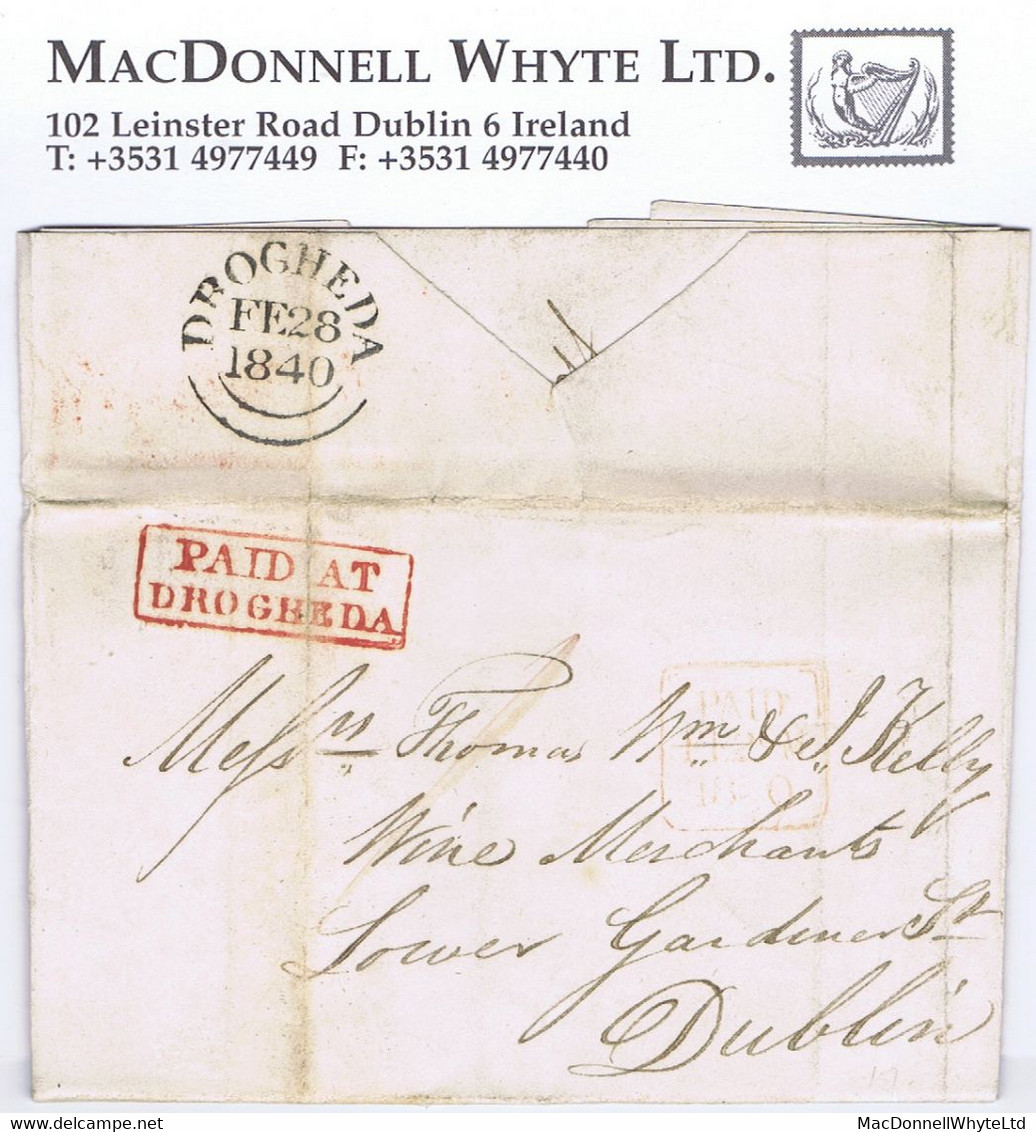 MACDONNELL WHYTE LTD.
102 Leinster Road Dublin 6 Ireland
T: +3531 4977449 F: +3531 4977440
DROGHEDA
FE28
1840
PAID AT
DROGHEDA
PAID
Messrs Thomas Wm & J Kelly
Wine Merchants
Lower Gardiner St
Dublin
MacDonnellWhyteLtd